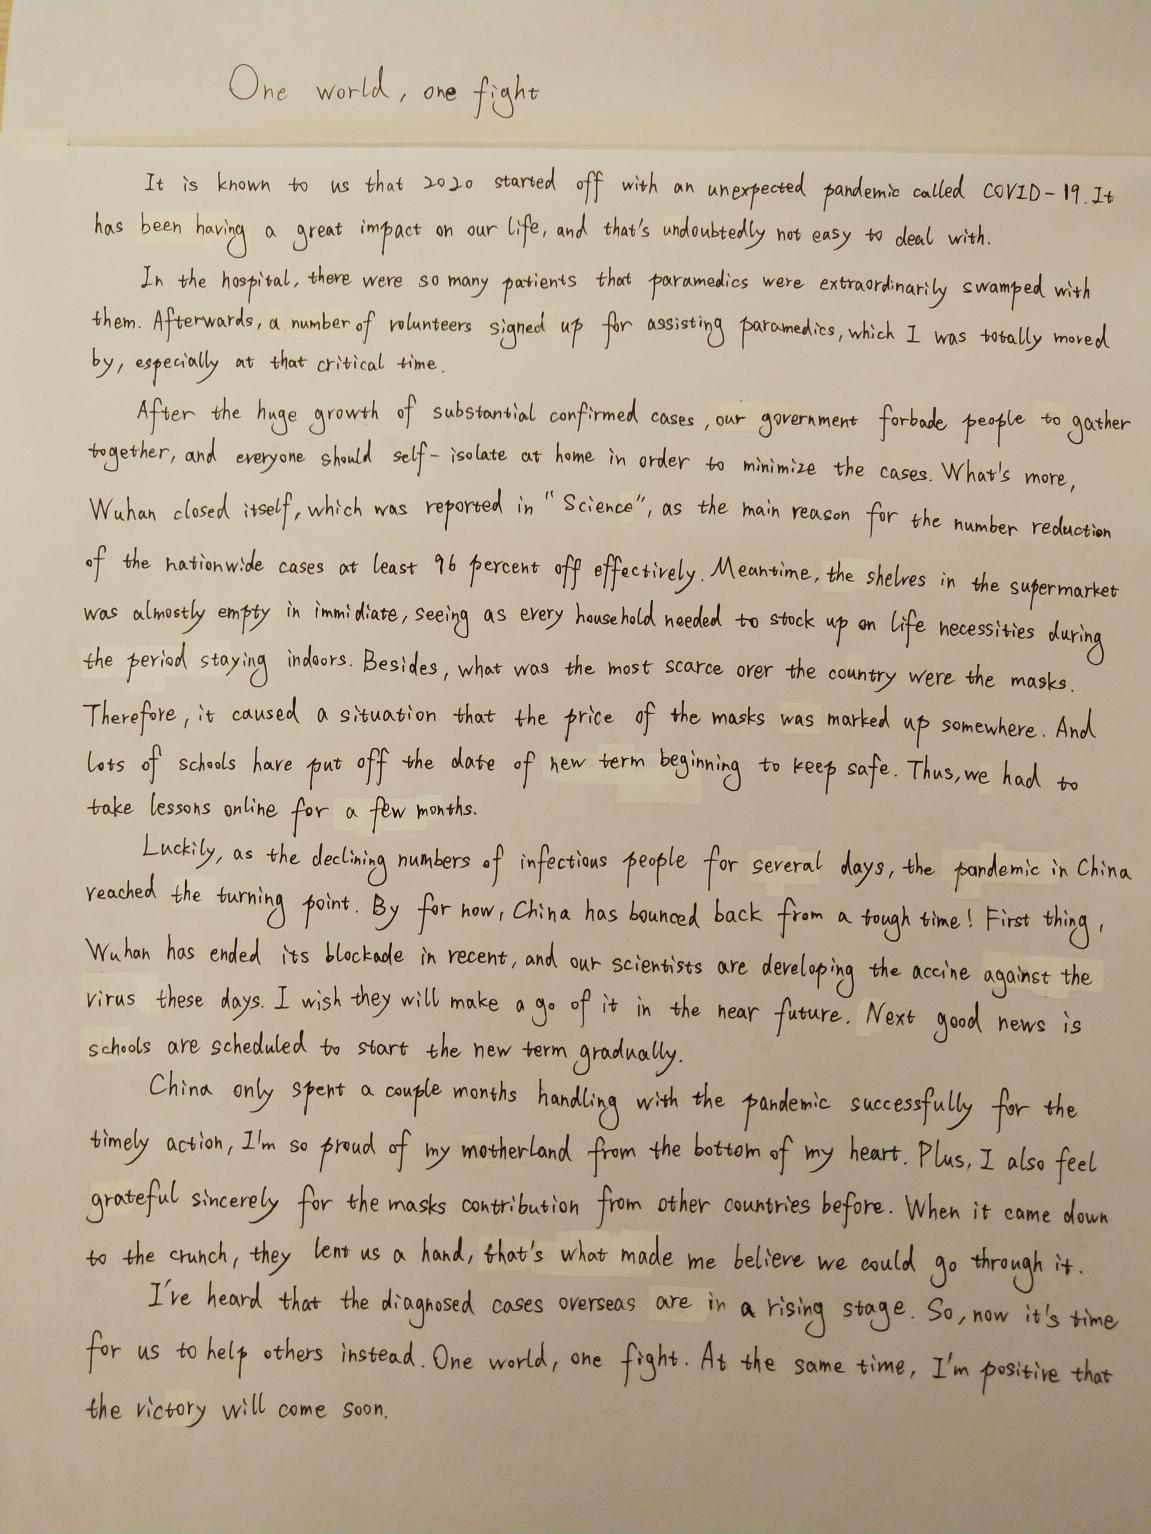 One world, one fight
It is known to us that 2020 started off with an unexpected pandemic called COVID-19. It
has been having a great impact on our life, and that's undoubtedly not easy to deal with.
In the hospital, there were so many patients that paramedics were extraordinarily swamped with
them. Afterwards, a number of volunteers signed up for assisting paramedics, which I was totally moved
by, especially at that critical time.
After the huge growth of substantial confirmed cases, our government forbade people to gather
together, and everyone should self-isolate at home in order to minimize the cases. What's more,
Wuhan closed itself, which was reported in "Science", as the main reason for the number reduction
of the nationwide cases at least 96 percent off effectively. Meantime, the shelves in the supermarket
was almostly empty in immidiate, seeing as every household needed to stock up on life necessities during
the period staying indoors. Besides, what was the most scarce over the country were the masks.
Therefore, it caused a situation that the price of the masks was marked up somewhere. And
lots of schools have put off the date of new term beginning to keep safe. Thus, we had to
take lessons online for a few months.
Luckily, as the declining numbers of infectious people for several days, the pandemic in China
reached the turning point. By for now, China has bounced back from a tough time! First thing,
Wuhan has ended its blockade in recent, and our scientists are developing the accine against the
virus these days. I wish they will make a go of it in the near future. Next good news is
schools are scheduled to start the new term gradually.
China only spent a couple months handling with the pandemic successfully for the
timely action, I'm so proud of my motherland from the bottom of my heart. Plus, I also feel
grateful sincerely for the masks contribution from other countries before. When it came down
to the crunch, they lent us a hand, that's what made me believe we could go through it.
I've heard that the diagnosed cases overseas are in a rising stage. So, now it's time
for us to help others instead. One world, one fight. At the same time, I'm positive that
the victory will come soon.